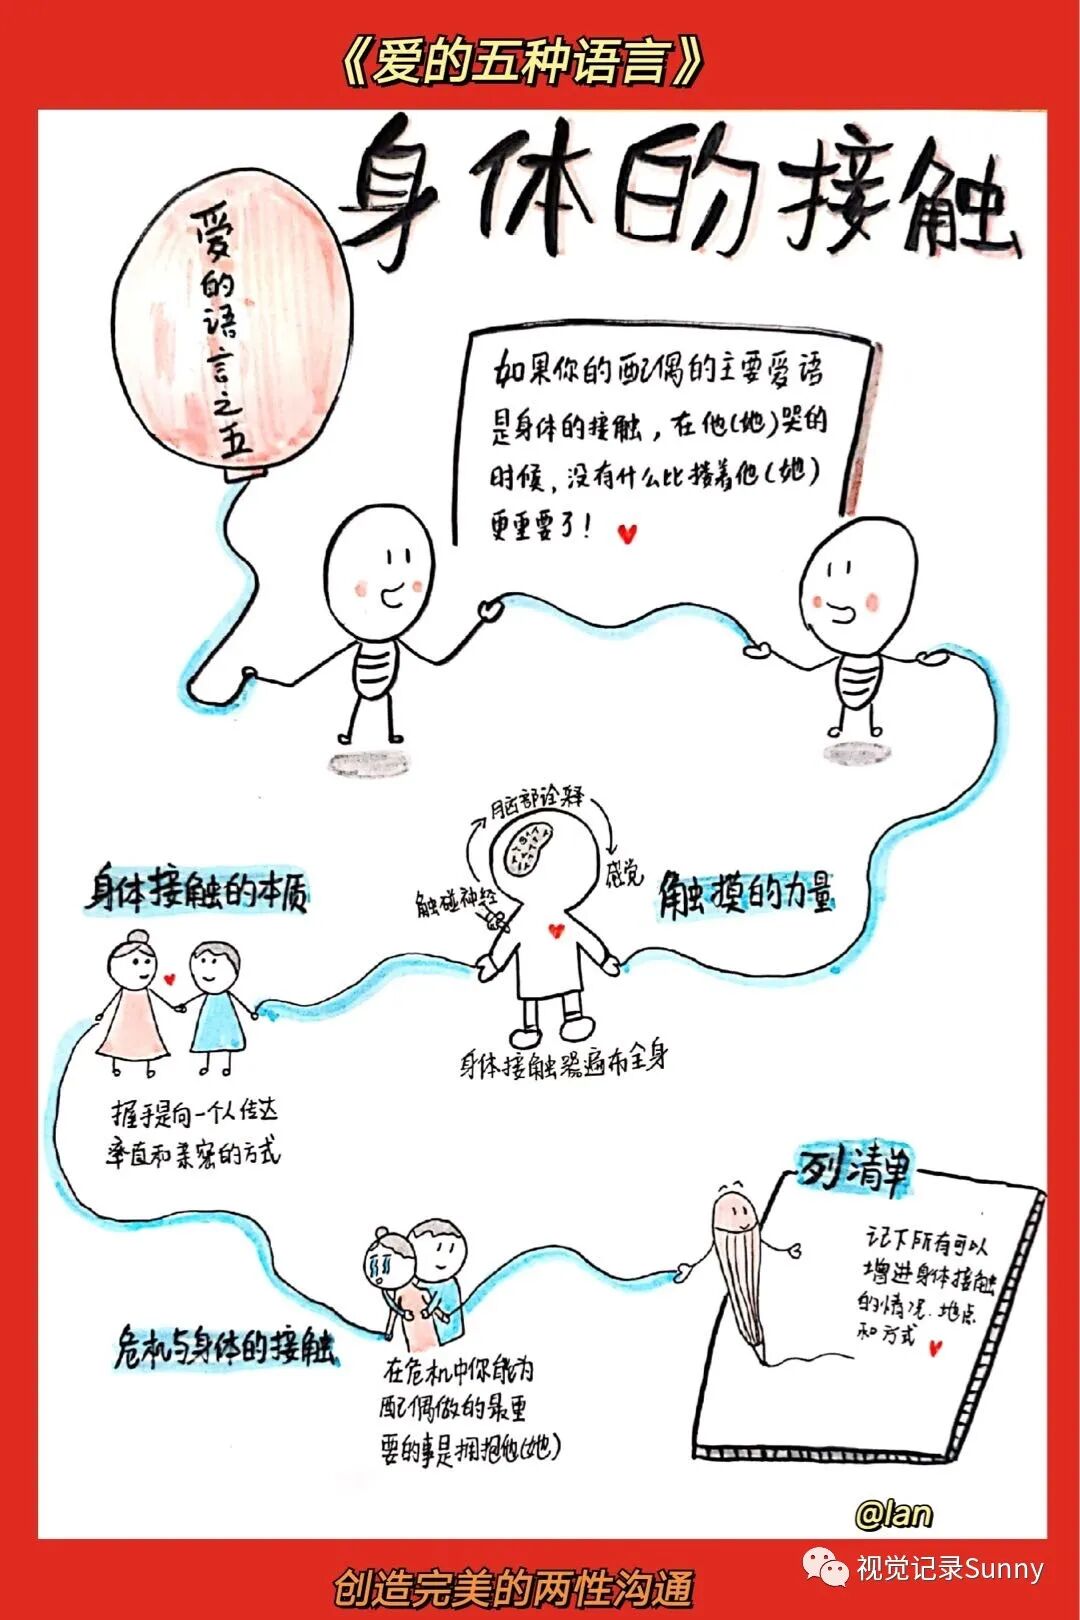 《爱的五种语言》
身体的接触
爱的语言之五
如果你的配偶的主要爱语
是身体的接触，在他(她)哭的
时候，没有什么比搂着他(她)
更重要了！
脑部诠释
感觉
触碰神经
触摸的力量
身体接触的本质
身体接触器遍布全身
握手是向一个人传达
率直和亲密的方式
列清单
记下所有可以
增进身体接触
的情况、地点
和方式
危机与身体的接触
在危机中你能为
配偶做的最重
要的事是拥抱他(她)
@lan
视觉记录Sunny
创造完美的两性沟通